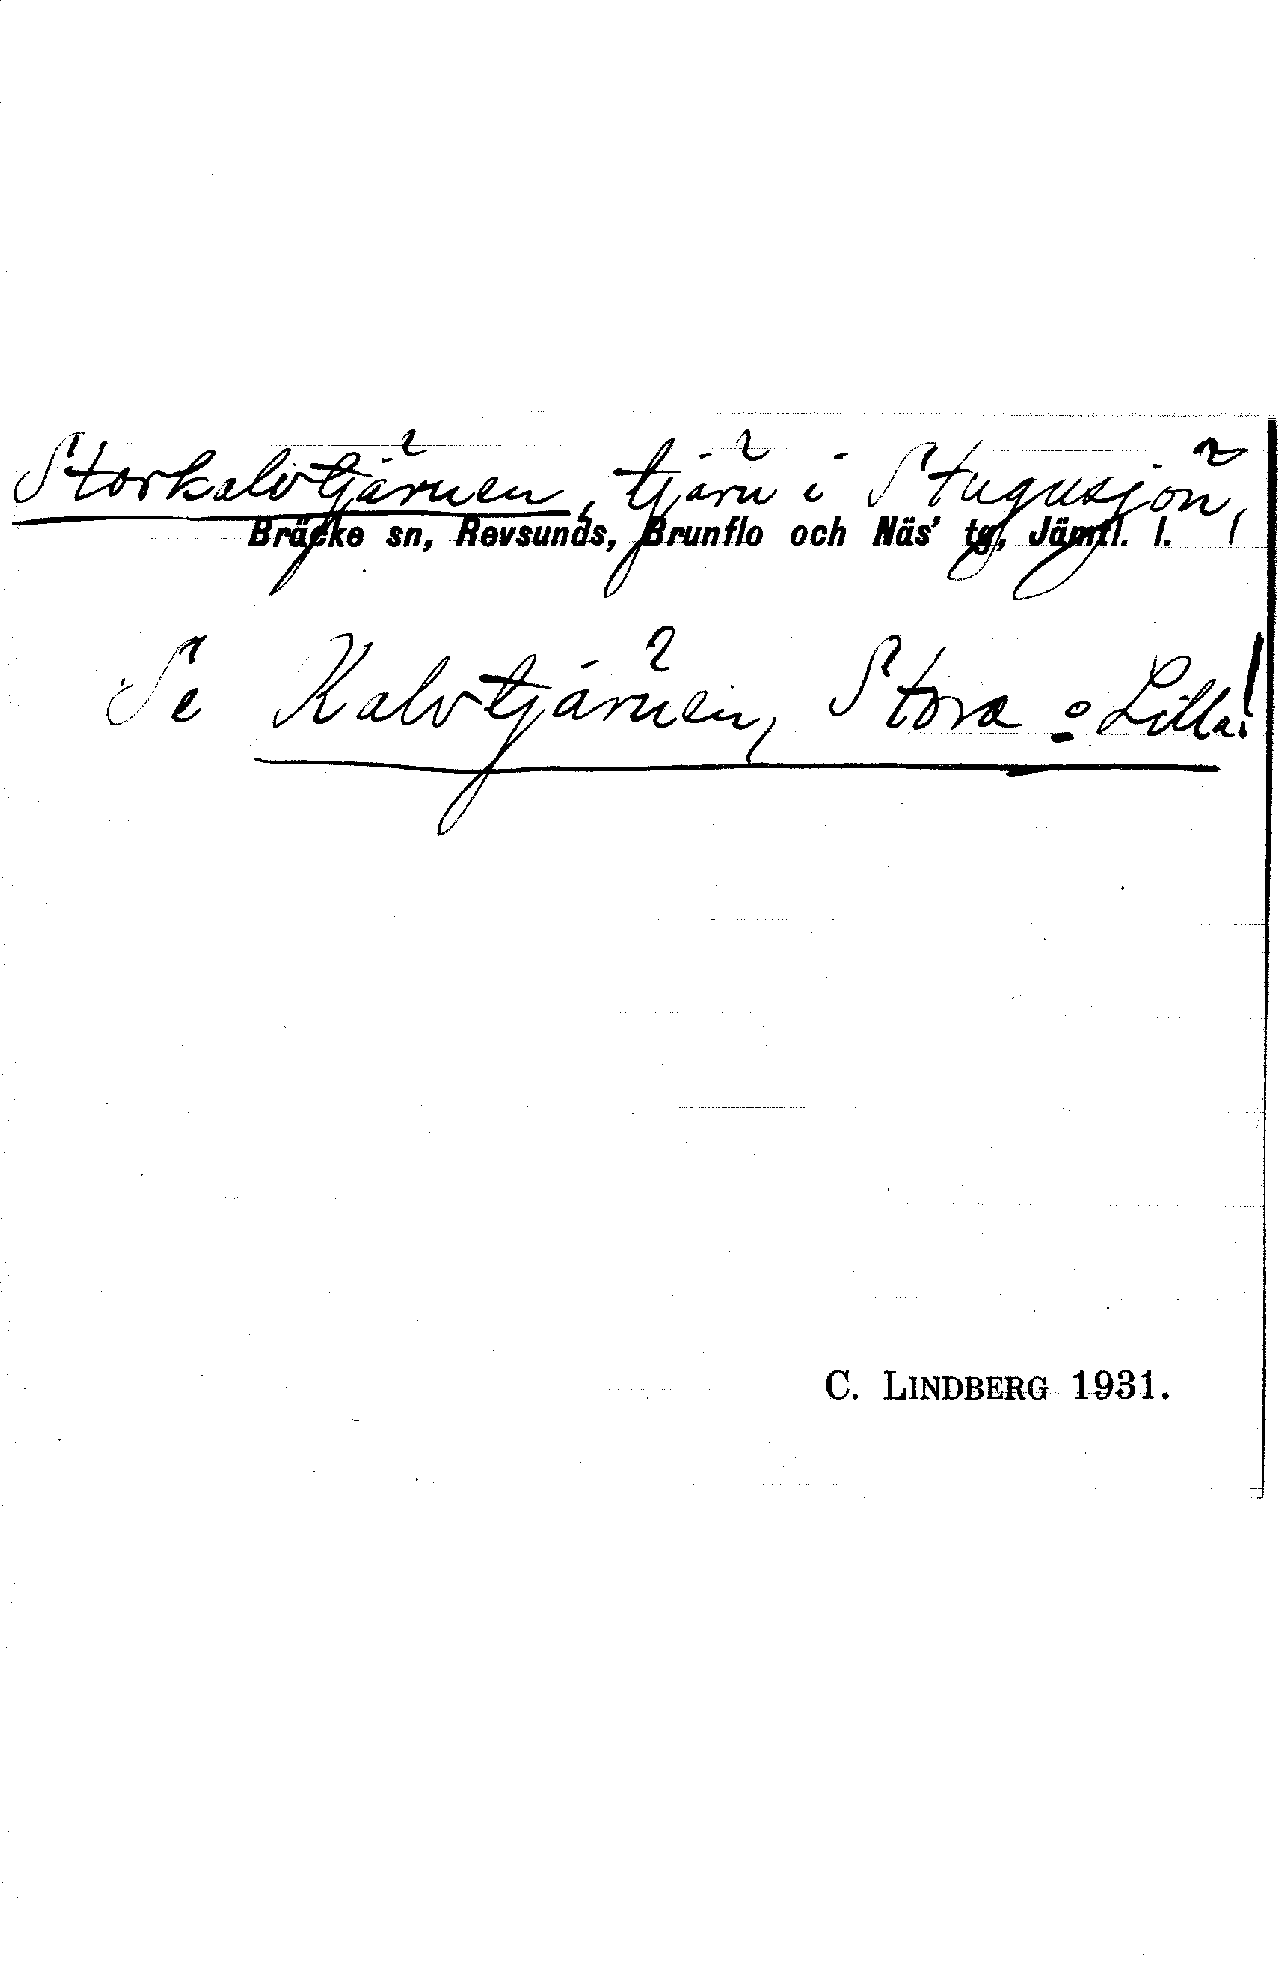 Storkalvtjärnen, tjärn i Stugusjön,
Bräcke sn, Revsunds, Brunflo och Näs' tg, Jämtl. l.
Se Kalvtjärnen, Stora o Lilla!
C. LINDBERG 1931.